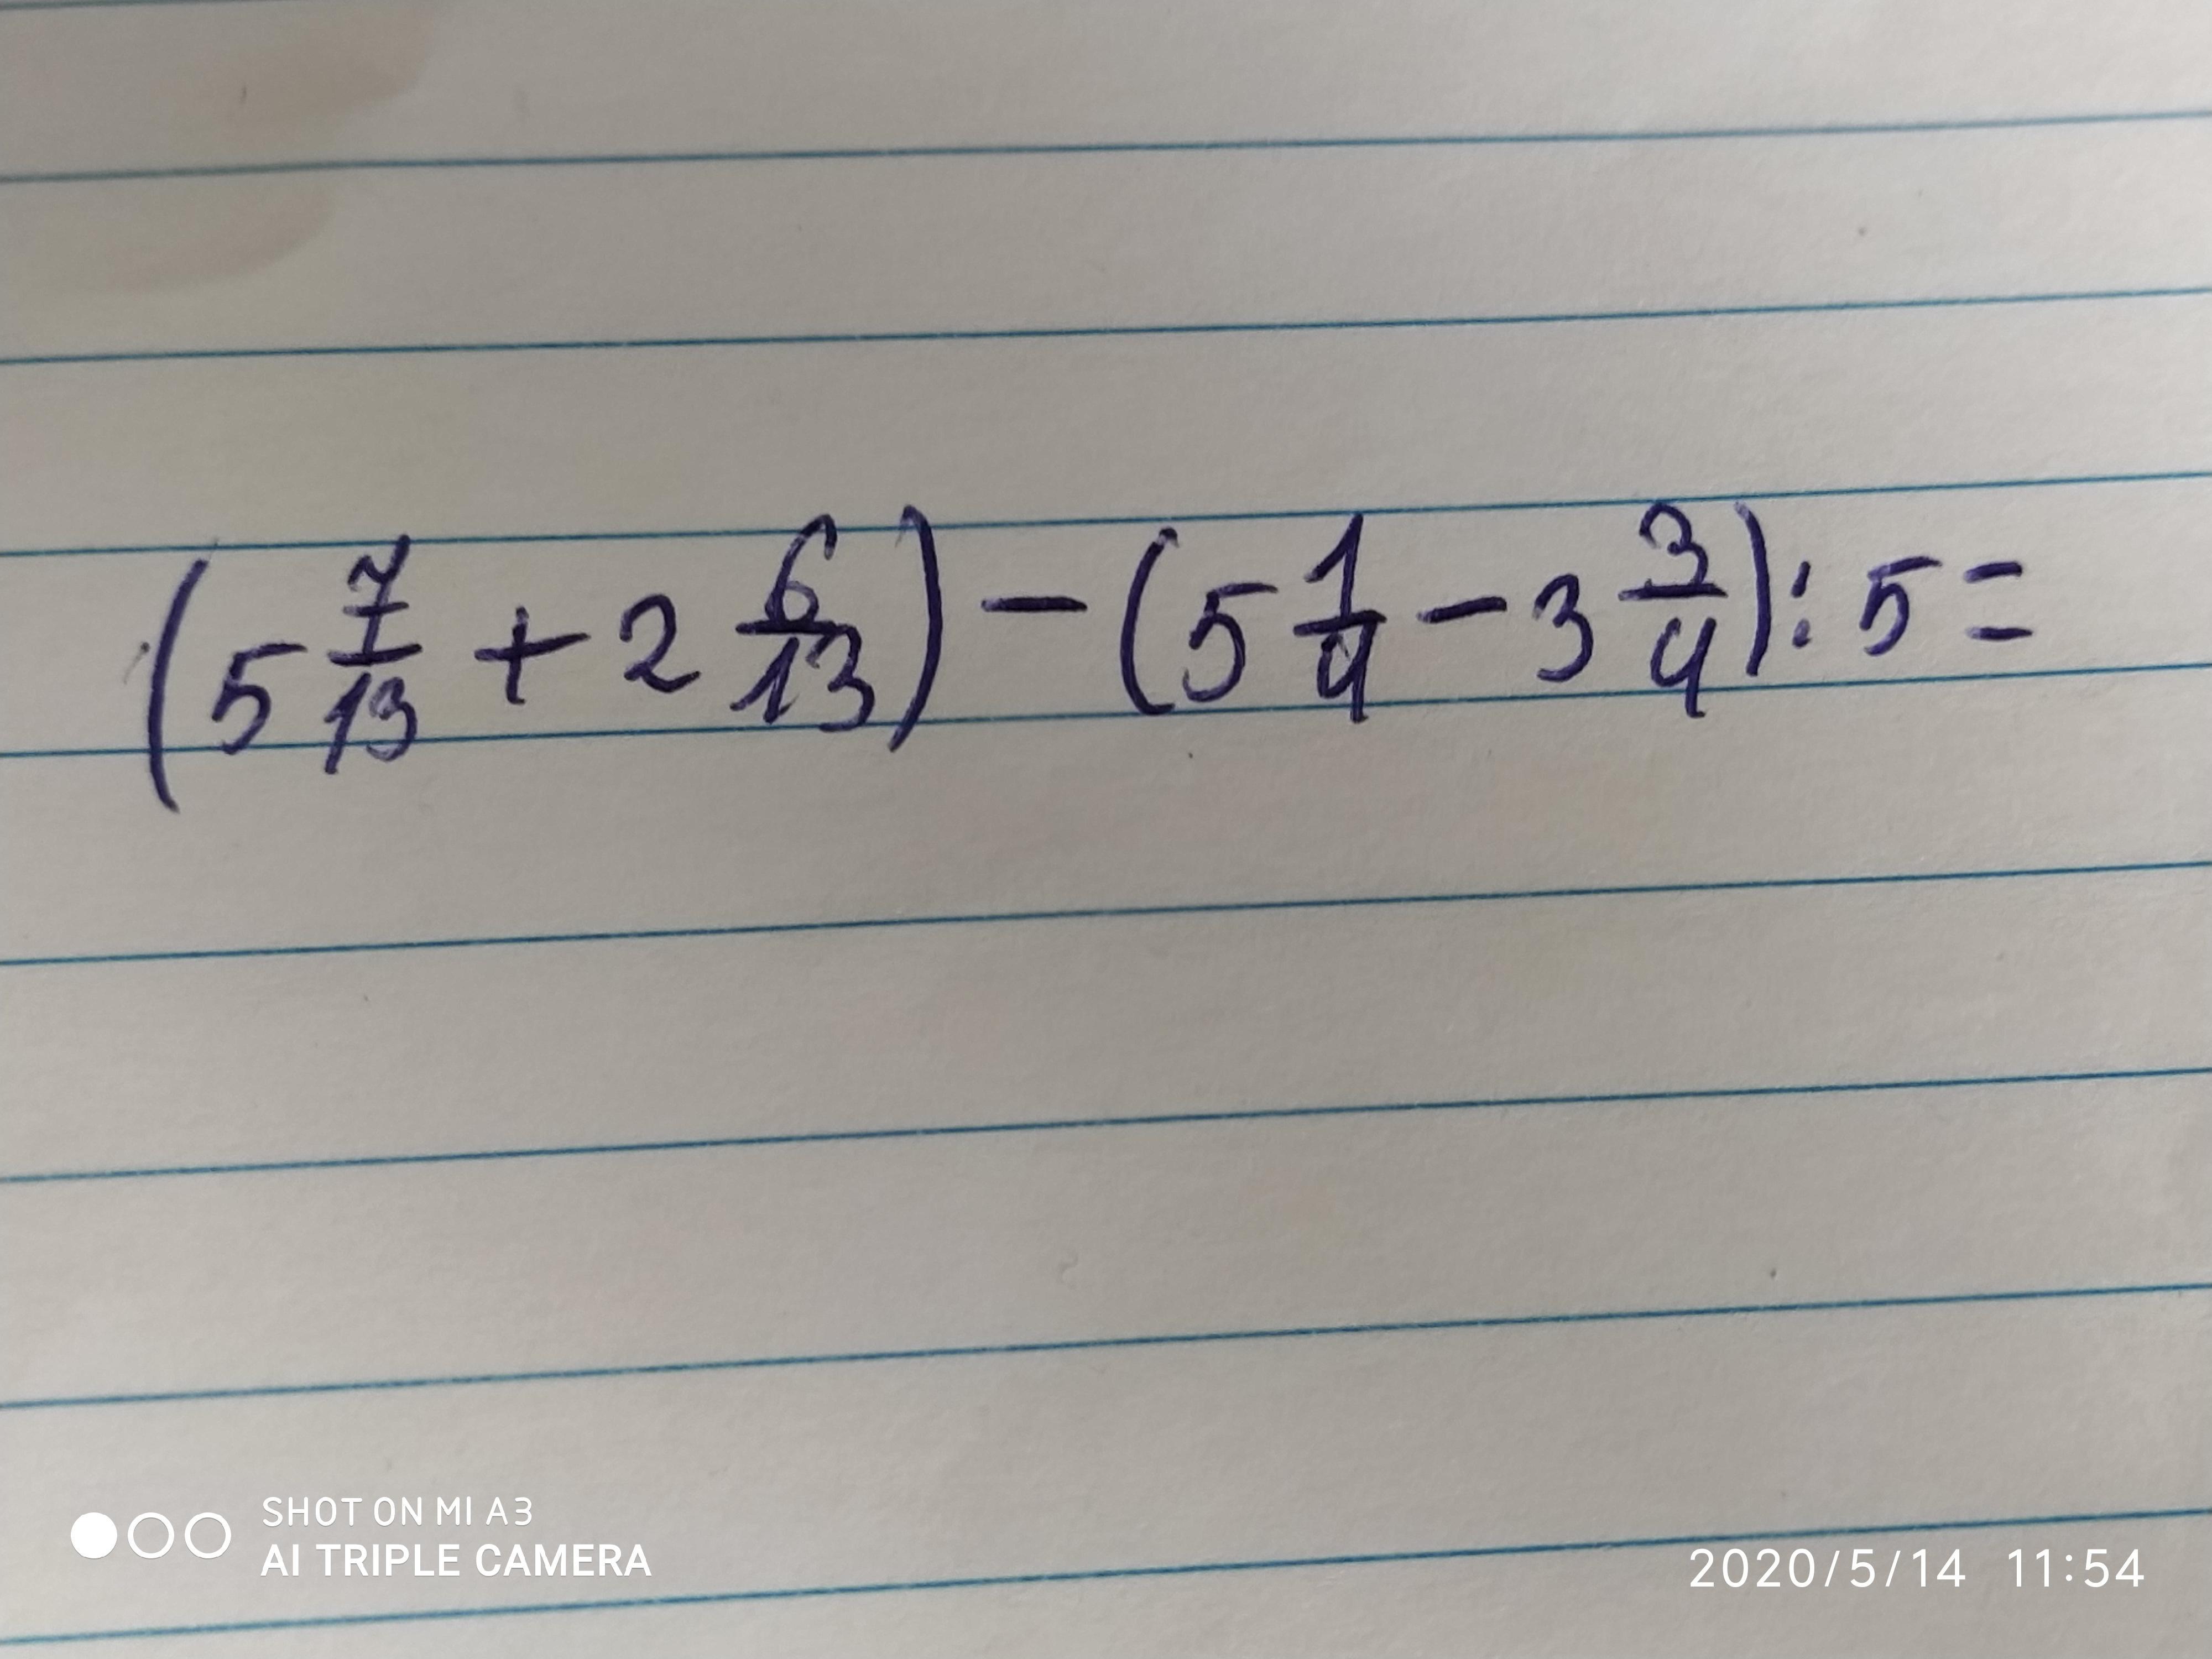 (5 7/13 + 2 6/13) - (5 1/4 - 3 3/4) : 5 =
SHOT ON MI A3
AI TRIPLE CAMERA
2020/5/14 11:54